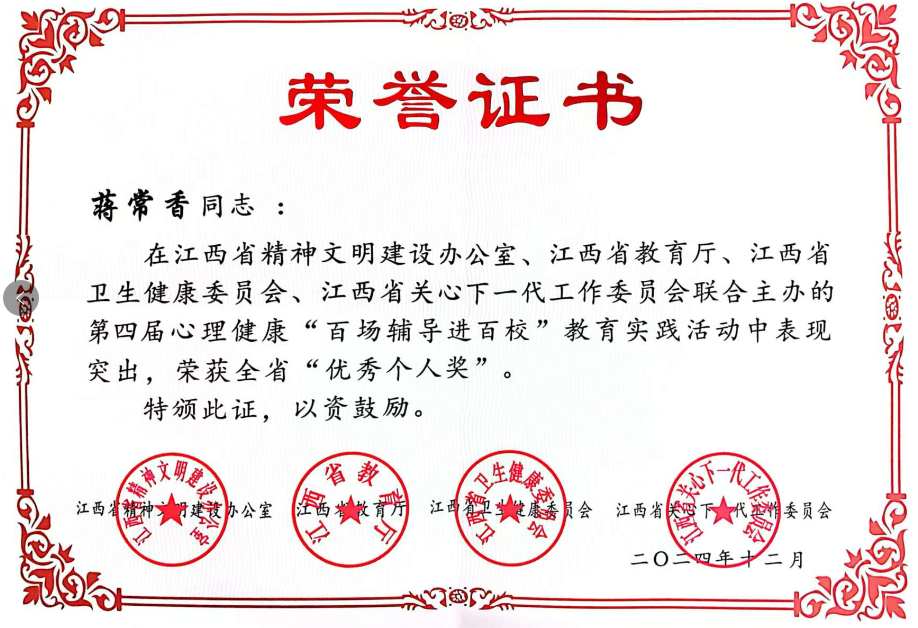 荣誉证书
蒋常香同志：
在江西省精神文明建设办公室、江西省教育厅、江西省
卫生健康委员会、江西省关心下一代工作委员会联合主办的
第四届心理健康“百场辅导进百校”教育实践活动中表现
突出，荣获全省“优秀个人奖”。
特颁此证，以资鼓励。
江西省精神文明建设办公室 江西省教育厅 江西省卫生健康委员会 江西省关心下一代工作委员会
江西省精神文明建设办公室
江西省教育厅
江西省卫生健康委员会
江西省关心下一代工作委员会
二〇二四年十二月